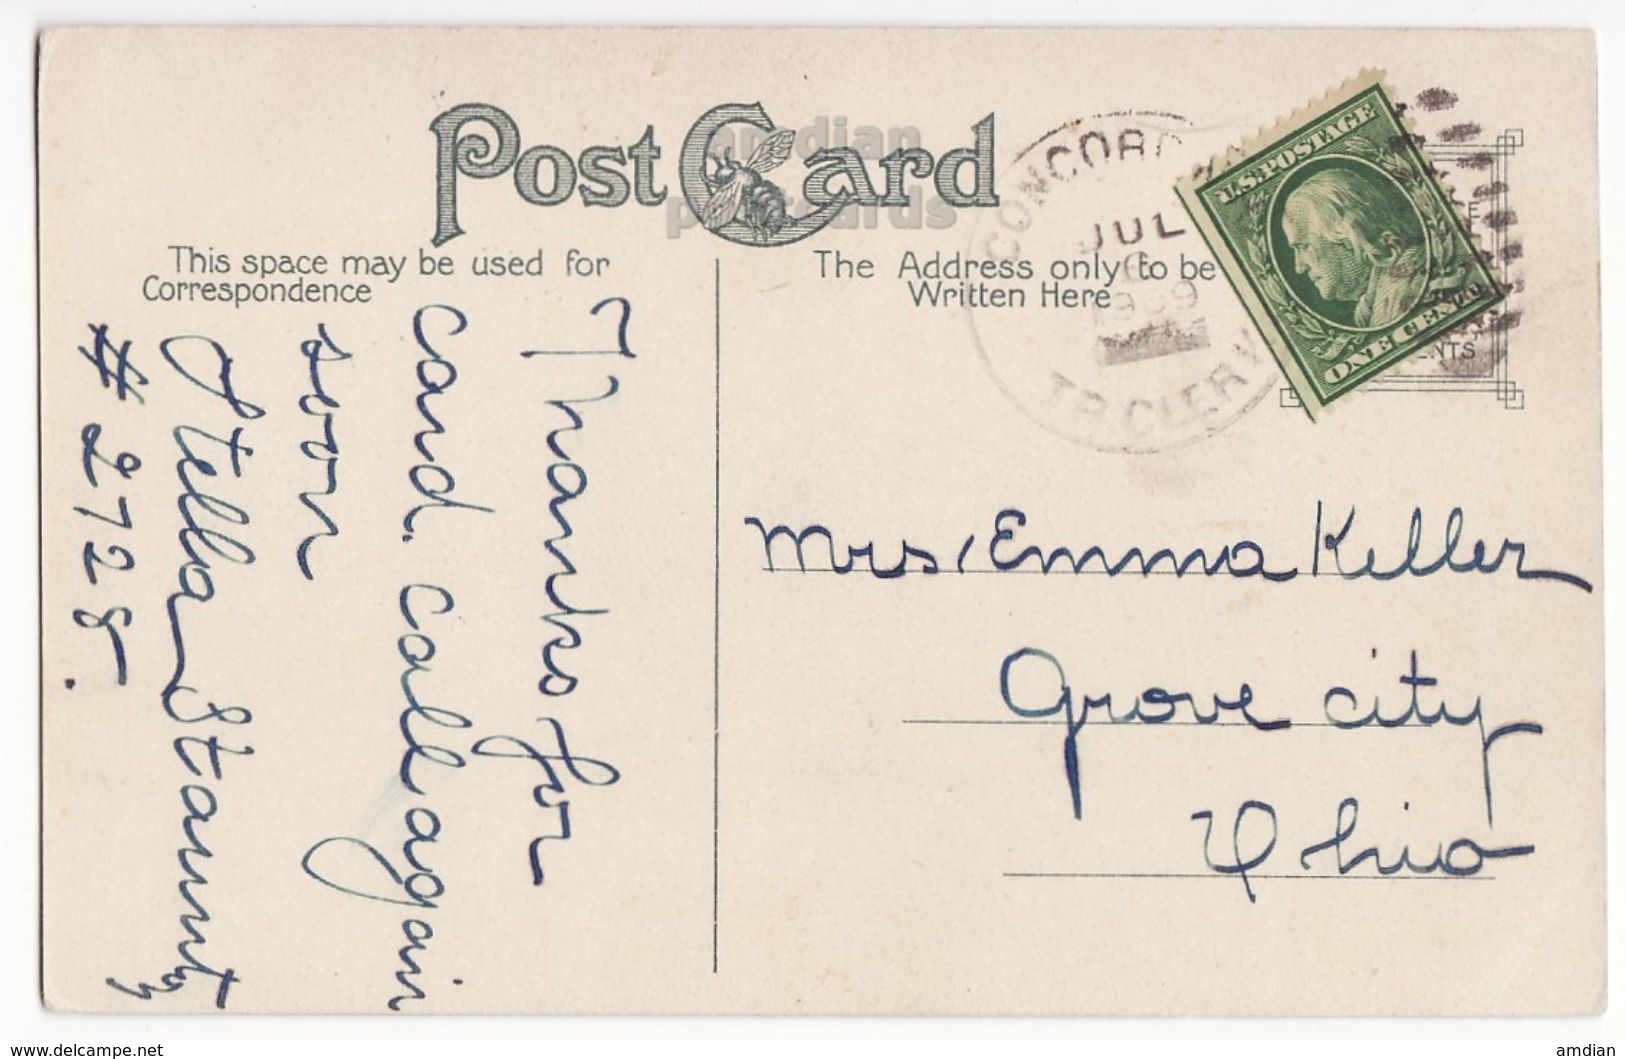 Post Card
amdian
postcards
This space may be used for
Correspondence
The Address only to be
Written Here
CONCORD
JUL
6
1909
TR. CLERK
U.S. POSTAGE
ONE CENT
CENTS
Thanks for
card. call again
soon
Stella
# 2728.
Mrs. Emma Keller
Grove city
Ohio
www.delcampe.net
amdian